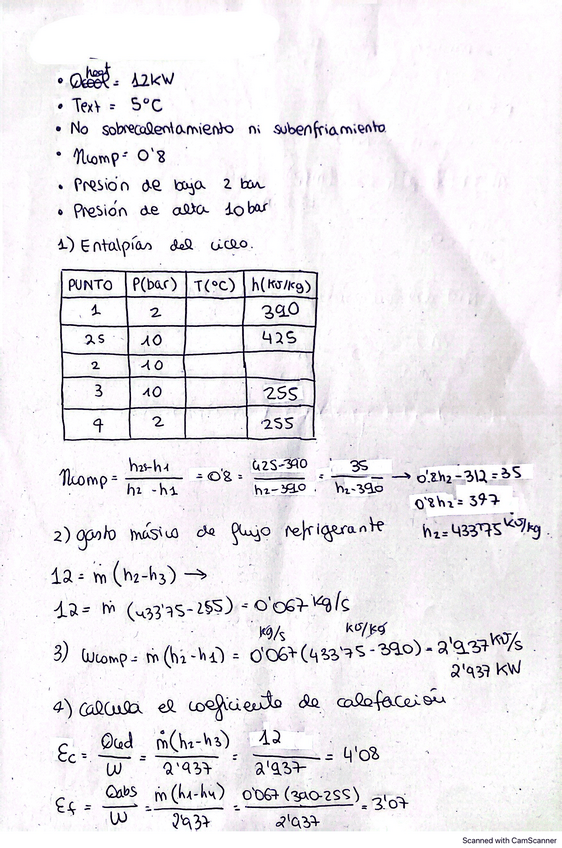 • Qheat = 12KW
• Text = 5°C
• No sobrecalentamiento ni subenfriamiento
• ηcomp = 0'8
• Presión de baja 2 bar
• Presión de alta 10 bar
1) Entalpías del ciclo.
PUNTO P(bar) T(°C) h(KJ/kg)
1 2 390
2s 10 425
2 10
3 10 255
4 2 255
ηcomp = (h2s-h1)/(h2-h1) = 0'8 = (425-390)/(h2-390) = 35/(h2-390) → 0'8h2-312=35
0'8h2 = 347
h2 = 433'75 KJ/kg.
2) gasto másico de flujo refrigerante
12 = ṁ (h2-h3) →
12 = ṁ (433'75-255) = 0'067 kg/s
kg/s KJ/kg
3) Wcomp = ṁ(h2-h1) = 0'067(433'75-390) = 2'937 KJ/s
2'937 KW
4) calcula el coeficiente de calefacción
Ec = Qced/W = ṁ(h2-h3)/2'937 = 12/2'937 = 4'08
Ef = Qabs/W = ṁ(h1-h4)/2'937 = 0'067(390-255)/2'937 = 3'07
Scanned with CamScanner